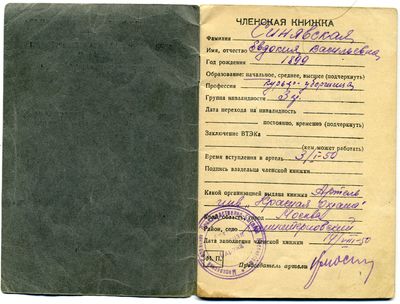 ЧЛЕНСКАЯ КНИЖКА
Фамилия Синявская
Имя, отчество Евдокия Васильевна
Год рождения 1899
Образование: начальное, среднее, высшее (подчеркнуть)
Профессия уборщица
Группа инвалидности 3 гр.
Дата перехода на инвалидность
постоянно, временно (подчеркнуть)
Заключение ВТЭКа
(кем может работать)
Время вступления в артель 3/I-50
Подпись владельца членской книжки
Какой организацией выдана книжка Артель
инв. "Красная
область, город Москва
Район, село Коминтерновский
Дата заполнения членской книжки 19/VIII-50
М. П.
Председатель артели